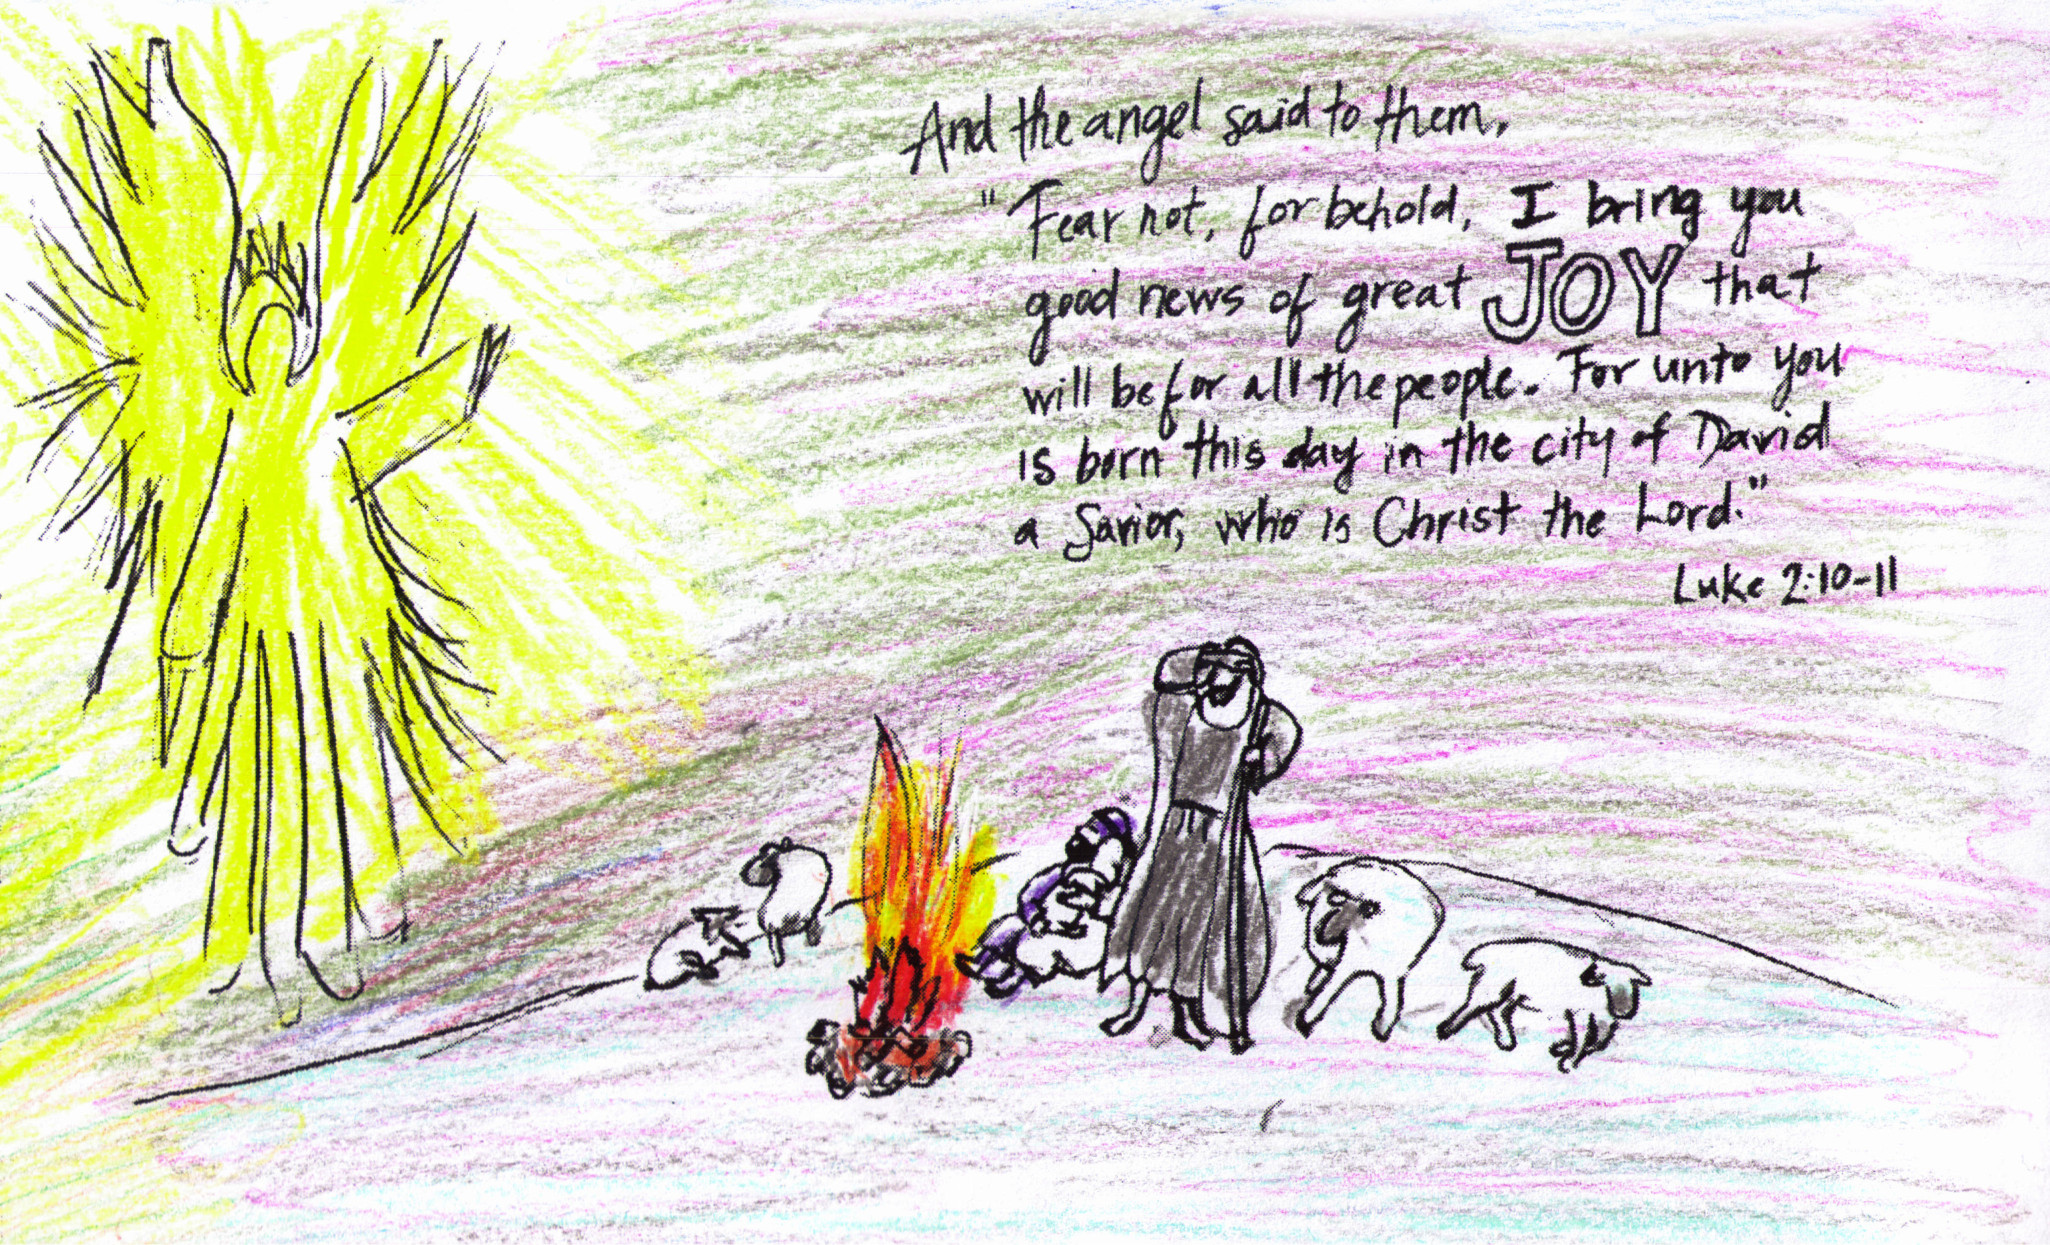 And the angel said to them,
"Fear not, for behold, I bring you
good news of great JOY that
will be for all the people. For unto you
is born this day in the city of David
a Savior, who is Christ the Lord."
Luke 2:10-11